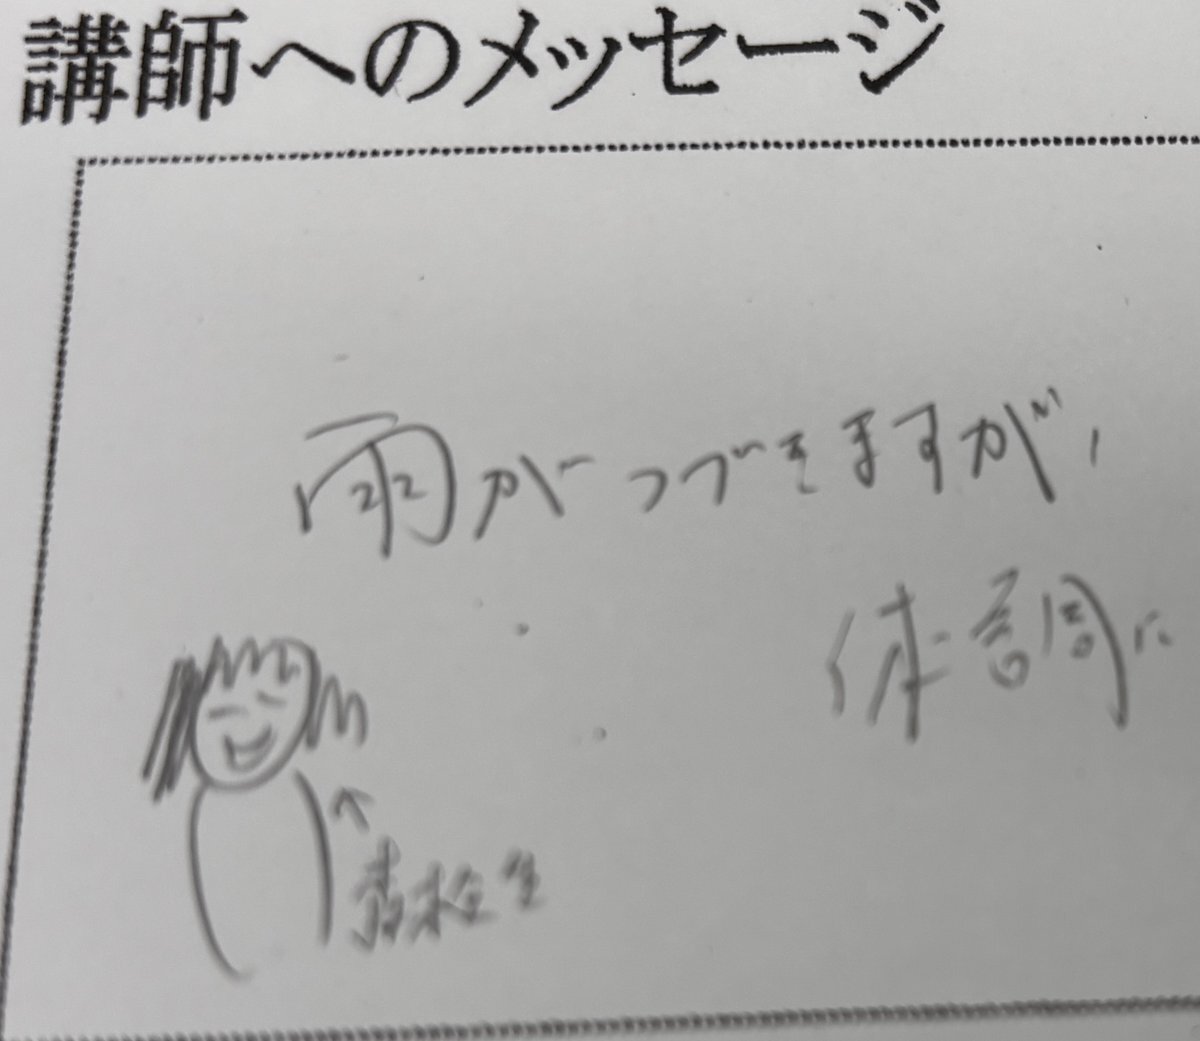 講師へのメッセージ
雨がつづきますが、
体調に
↑